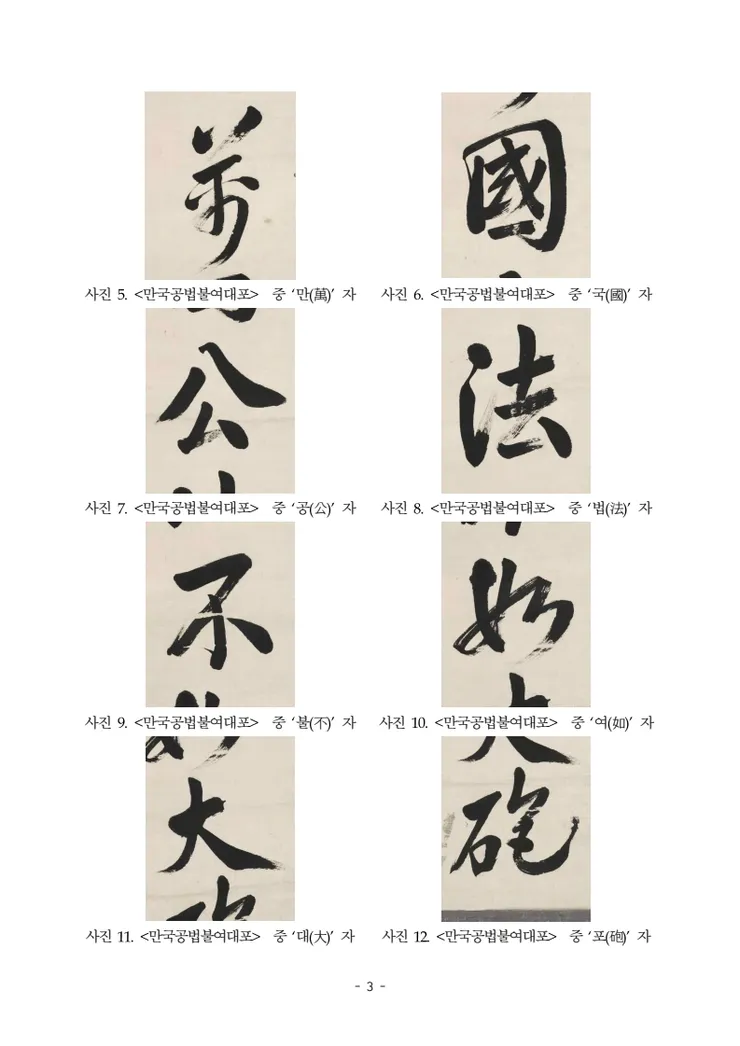 萬
國
사진 5. <만국공법불여대포> 중 ‘만(萬)’ 자
사진 6. <만국공법불여대포> 중 ‘국(國)’ 자
公
法
사진 7. <만국공법불여대포> 중 ‘공(公)’ 자
사진 8. <만국공법불여대포> 중 ‘법(法)’ 자
不
如
사진 9. <만국공법불여대포> 중 ‘불(不)’ 자
사진 10. <만국공법불여대포> 중 ‘여(如)’ 자
大
砲
사진 11. <만국공법불여대포> 중 ‘대(大)’ 자
사진 12. <만국공법불여대포> 중 ‘포(砲)’ 자
- 3 -